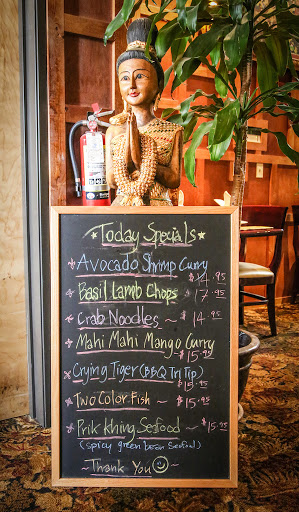 Today Specials
Avocado Shrimp Curry
$14.95
Basil Lamb Chops $17.95
Crab Noodles ~ $14.95
Mahi Mahi Mango Curry
~$15.95
Crying Tiger (BBQ Tri Tip)
$15.95
Two Color Fish ~ $15.95
Prik Khing Seafood ~ $15.95
(spicy green bean seafood)
~Thank You☺~